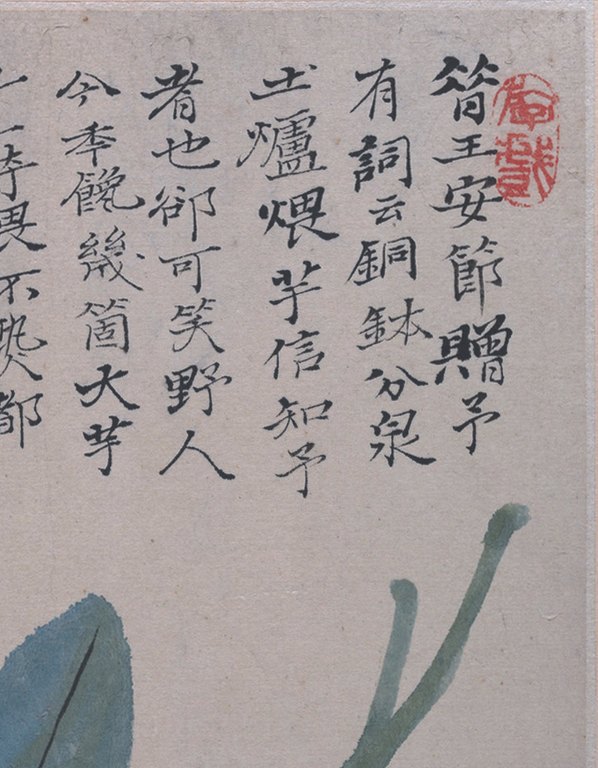 昝王安節贈予
有詞云銅鉢分泉
土爐煨芋信知予
者也卻可笑野人
今年饞幾箇大芋
奪畏不熟都